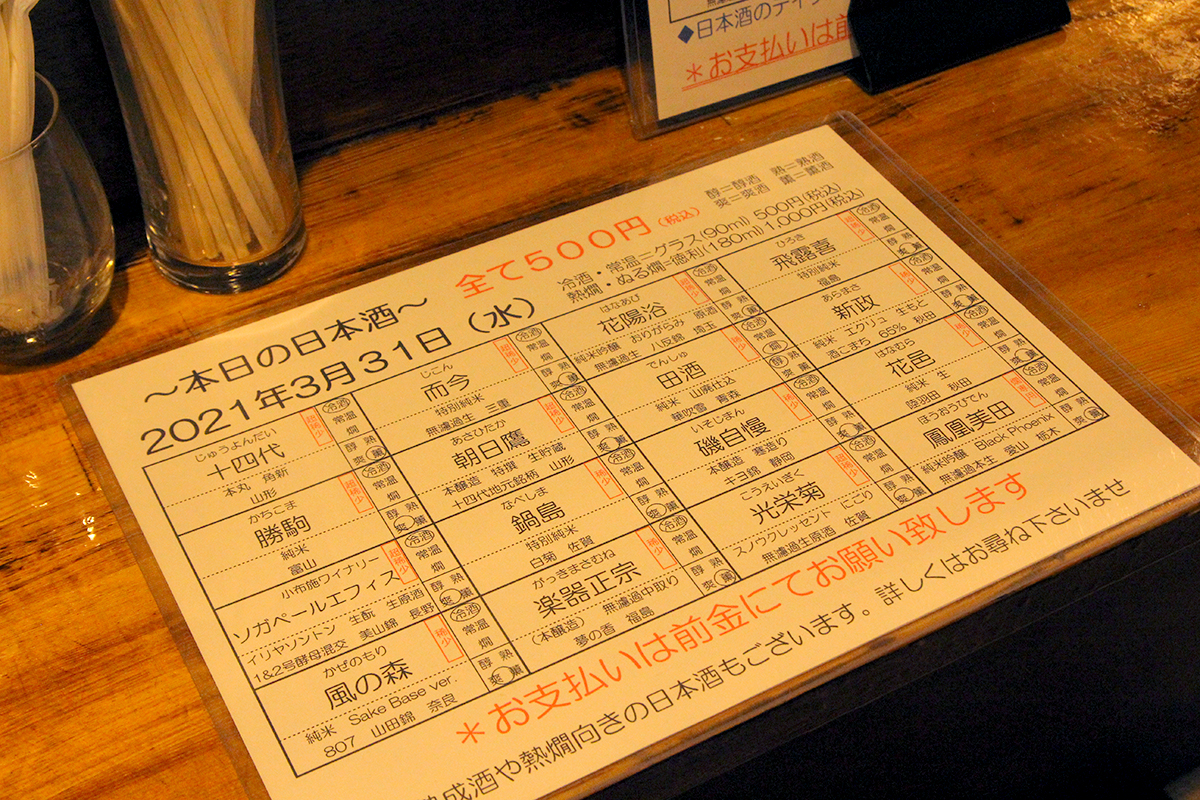 ◆日本酒の
*お支払いは前
～本日の日本酒～
2021年3月31日（水）
全て５００円（税込）
醇＝醇酒 熟＝熟酒
爽＝爽酒 薫＝薫酒
冷酒・常温＝グラス(90ml) 500円(税込)
熱燗・ぬる燗=徳利(180ml)1,000円(税込)
じゅうよんだい
十四代
本丸 角新
山形
超稀少
冷酒
常温
燗
醇 熟
爽 薫
かちこま
勝駒
純米
富山
超稀少
冷酒
常温
燗
醇 熟
爽 薫
小布施ワイナリー
ソガペールエフィス
イリヤソントン 生酛 生原酒
1&2号酵母混交 美山錦 長野
超稀少
冷酒
常温
燗
醇 熟
爽 薫
かぜのもり
風の森
純米 Sake Base ver.
807 山田錦 奈良
稀少
冷酒
常温
燗
醇 熟
爽 薫
じこん
而今
特別純米
無濾過生 三重
超稀少
冷酒
常温
燗
醇 熟
爽 薫
あさひたか
朝日鷹
本醸造 特撰 生貯蔵
十四代地元銘柄 山形
超稀少
冷酒
常温
燗
醇 熟
爽 薫
なべしま
鍋島
特別純米
白菊 佐賀
稀少
冷酒
常温
燗
醇 熟
爽 薫
がっきまさむね
楽器正宗
（本醸造） 無濾過中取り
夢の香 福島
稀少
冷酒
常温
燗
醇 熟
爽 薫
はなあび
花陽浴
純米吟醸 おりがらみ 原酒
無濾過生 八反錦 埼玉
超稀少
冷酒
常温
燗
醇 熟
爽 薫
でんしゅ
田酒
純米 山廃仕込
華吹雪 青森
稀少
冷酒
常温
燗
醇 熟
爽 薫
いそじまん
磯自慢
本醸造 寒造り
キヨ錦 静岡
超稀少
冷酒
常温
燗
醇 熟
爽 薫
こうえいぎく
光栄菊
スノウクレッセント にごり
無濾過生原酒 佐賀
超稀少
冷酒
常温
燗
醇 熟
爽 薫
ひろき
飛露喜
特別純米
福島
超稀少
冷酒
常温
燗
醇 熟
爽 薫
あらまさ
新政
純米 エクリュ 生もと
酒こまち 65% 秋田
超稀少
冷酒
常温
燗
醇 熟
爽 薫
はなむら
花邑
純米 生
陸羽田 秋田
稀少
冷酒
常温
燗
醇 熟
爽 薫
ほうおうびでん
鳳凰美田
純米吟醸 Black Phoenix
無濾過本生 愛山 栃木
冷酒
常温
燗
醇 熟
爽 薫
＊お支払いは前金にてお願い致します
熟成酒や熱燗向きの日本酒もございます。詳しくはお尋ね下さいませ